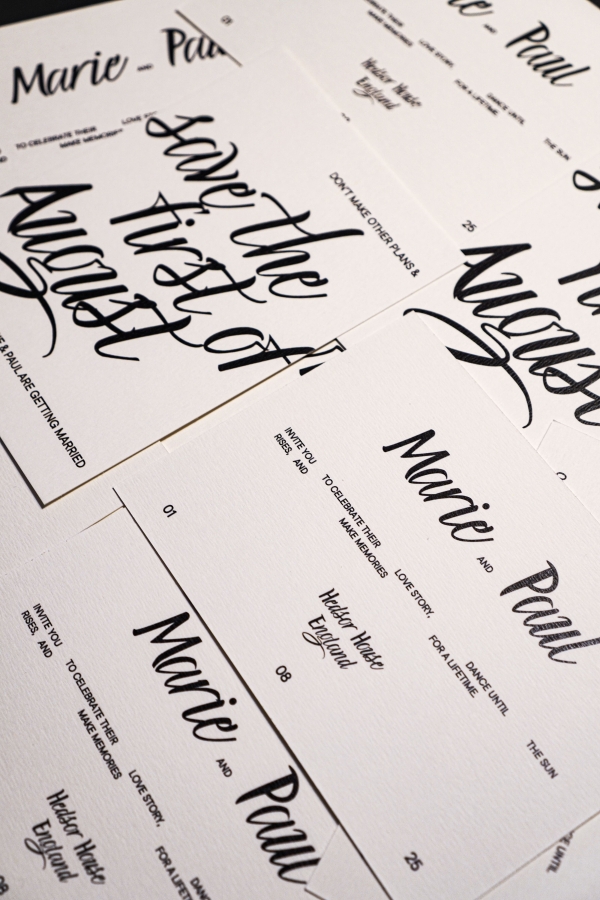 Marie AND
TO CELEBRATE THEIR
LOVE
01
AND Paul
TO CELEBRATE THEIR LOVE STORY, DANCE UNTIL THE SUN
MAKE MEMORIES FOR A LIFETIME.
Hedsor House
England
25
DON'T MAKE OTHER PLANS &
save the
first of
August
& PAUL ARE GETTING MARRIED
August
Marie AND Paul
INVITE YOU TO CELEBRATE THEIR LOVE STORY, DANCE UNTIL THE SUN
RISES, AND MAKE MEMORIES FOR A LIFETIME.
Hedsor House
England
01 08 25
Marie AND Paul
INVITE YOU TO CELEBRATE THEIR LOVE STORY,
RISES, AND MAKE MEMORIES FOR A
Hedsor House
England
UNTIL